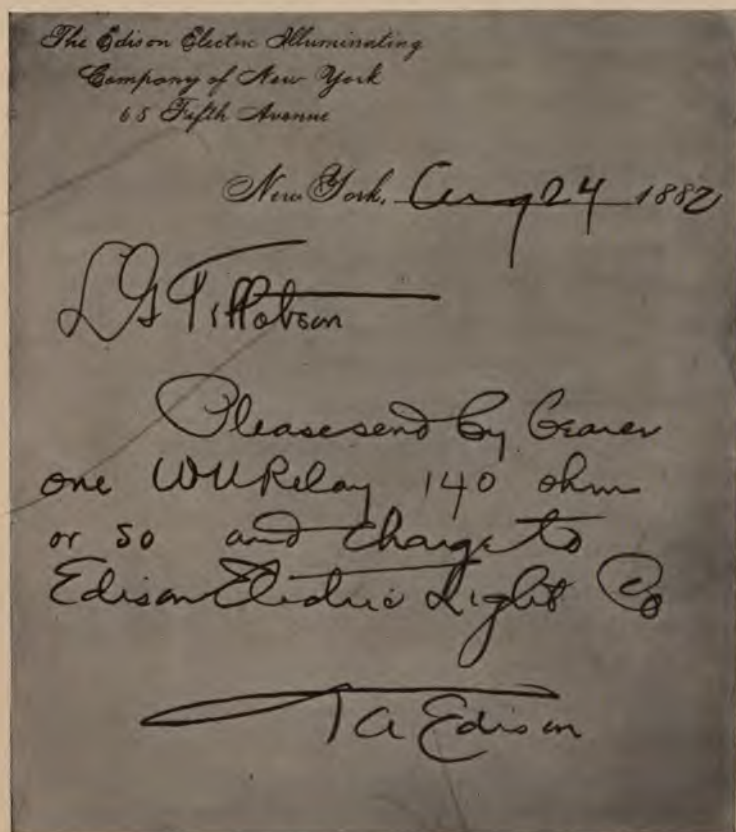 The Edison Electric Illuminating
Company of New York
65 Fifth Avenue
New York, Aug 24 1882
L G Tillotson
Please send by bearer
one WU Relay 140 ohm
or so and charge to
Edison Electric Light Co
T A Edison